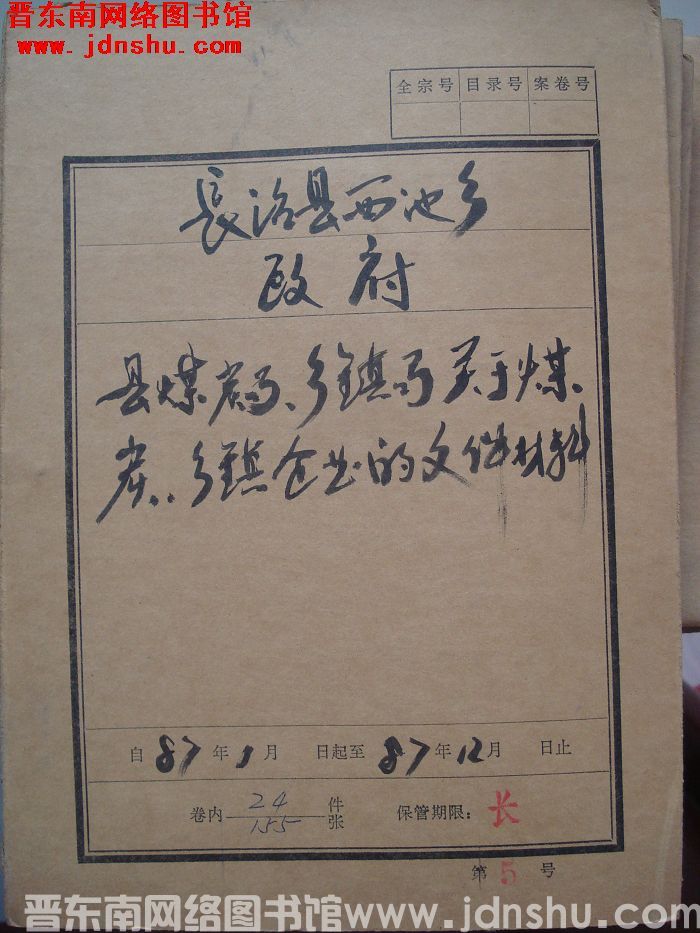 晋东南网络图书馆
www.jdnshu.com
全宗号 目录号 案卷号
長治县西池乡
政府
县煤炭局、乡镇局关于煤
炭、乡镇企业的文件材料
自87年1月 日起至87年12月 日止
卷内 24 件
155 张
保管期限：长
第5号
晋东南网络图书馆www.jdnshu.com